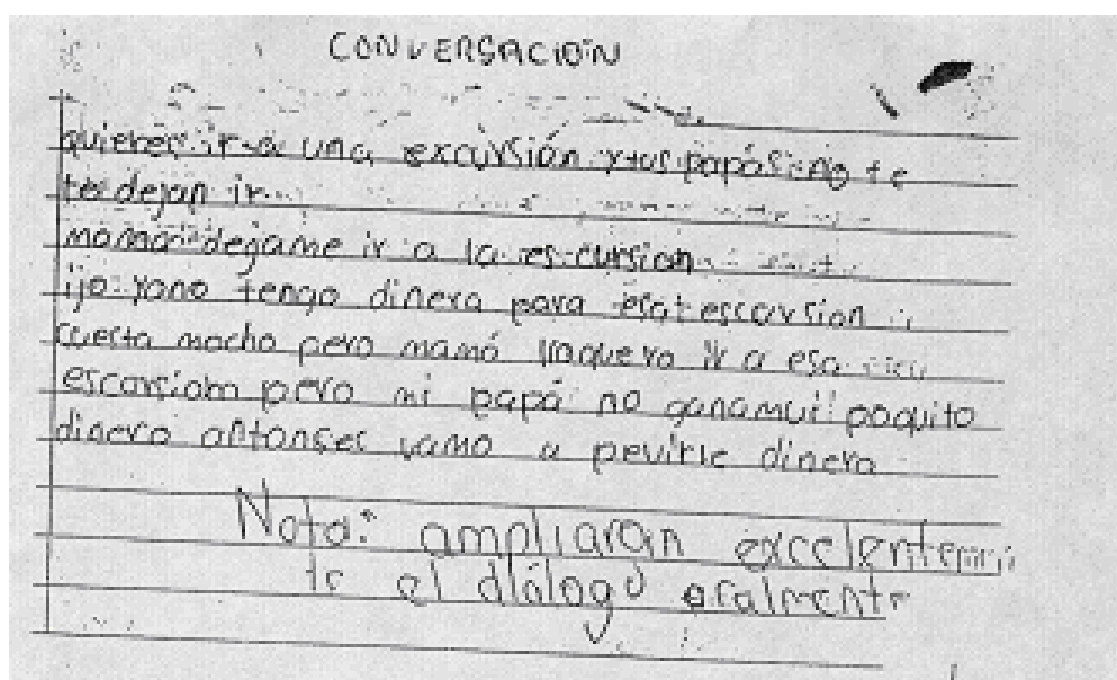 CONVERSACIÓN
quieres ir a una excursión y tus papás no te
te dejan ir
mamá dejame ir a la escursion
ijo yano tengo dinera para esat escorsion
cuesta mocho pero mamá llaquero ir a esa
escorsiom pero mi papá no ganamuii poquito
dinero antonses vamo a pevirle dinero
Nota: ampliaron excelentemen
te el diálogo oralmente